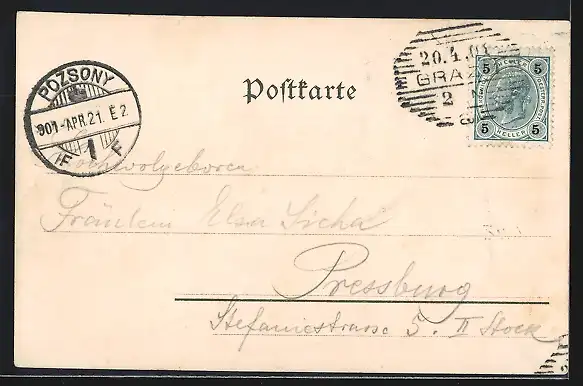 POZSONY
901-APR.21. E 2
F 1 F
Postkarte
20.4.01
GRAZ
2
5 5
HELLER
5 5
Hochwolgeboren
Fräulein Elsa Sicha
Pressburg
Stefaniestrasse 5. II Stock